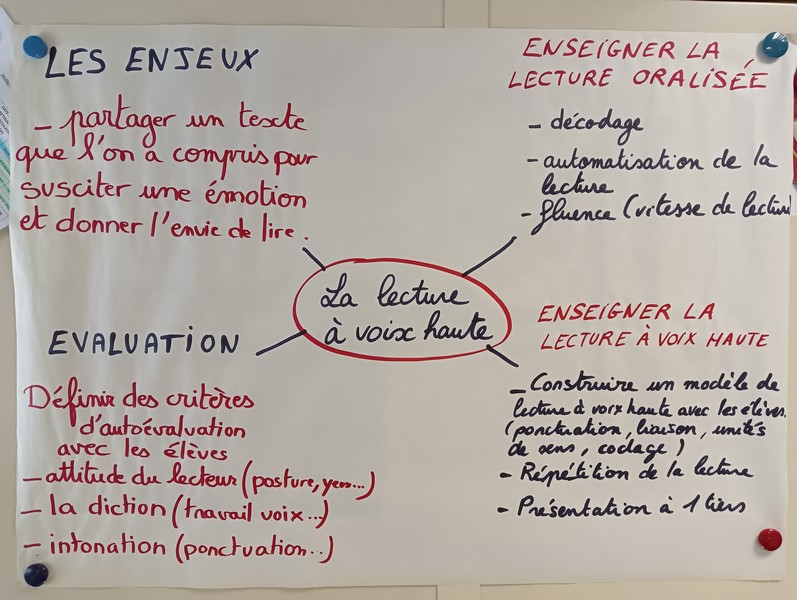 LES ENJEUX
– partager un texte
que l'on a compris pour
susciter une émotion
et donner l'envie de lire.
ENSEIGNER LA
LECTURE ORALISÉE
– décodage
– automatisation de la
lecture
– fluence (vitesse de lecture
La lecture
à voix haute
EVALUATION
Définir des critères
d'autoévaluation
avec les élèves
– attitude du lecteur (posture, yeux...)
– la diction (travail voix...)
– intonation (ponctuation...)
ENSEIGNER LA
LECTURE À VOIX HAUTE
– Construire un modèle de
lecture à voix haute avec les élèves.
(ponctuation, liaison, unités
de sens, codage)
– Répétition de la lecture
– Présentation à 1 tiers